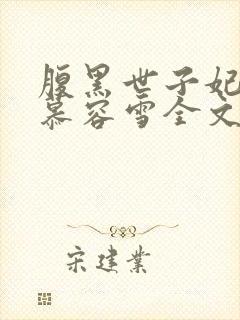 腹黑世子妃
慕容雪全文
宋建業